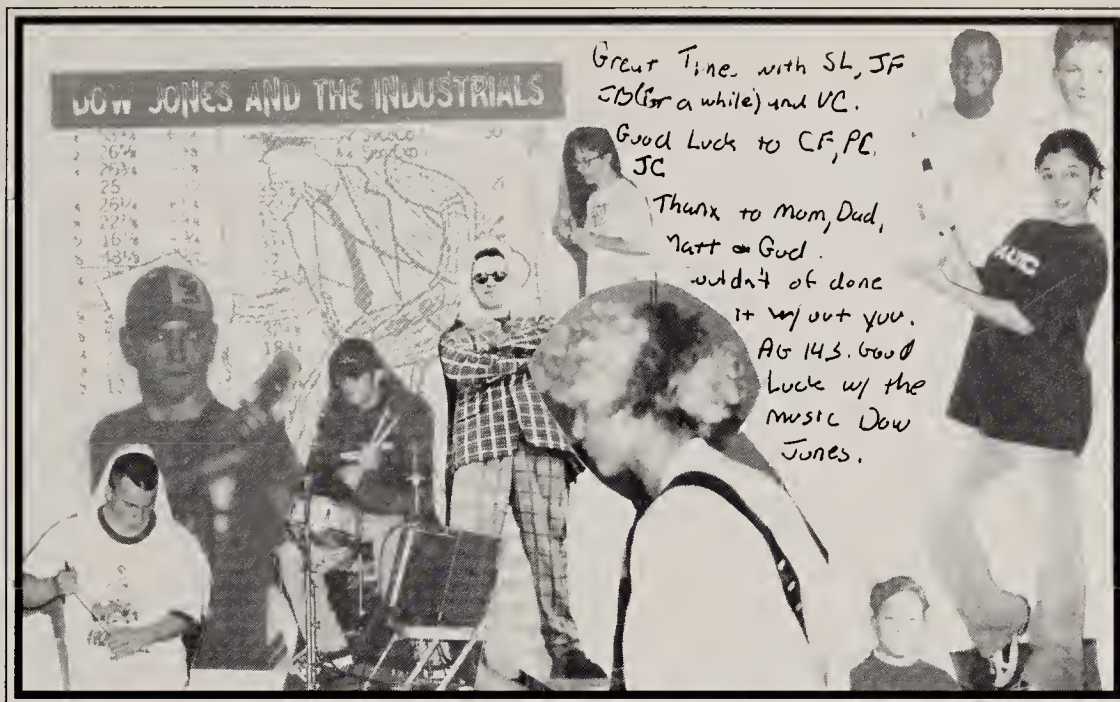 DOW JONES AND THE INDUSTRIALS
Great Time with SL, JF
JB(for a while) and VC.
Good Luck to CF, PC,
JC
Thanx to Mom, Dad,
Matt & God.
ouldn't of done
it w/out you.
AG 143. Good
Luck w/ the
music Dow
Jones.